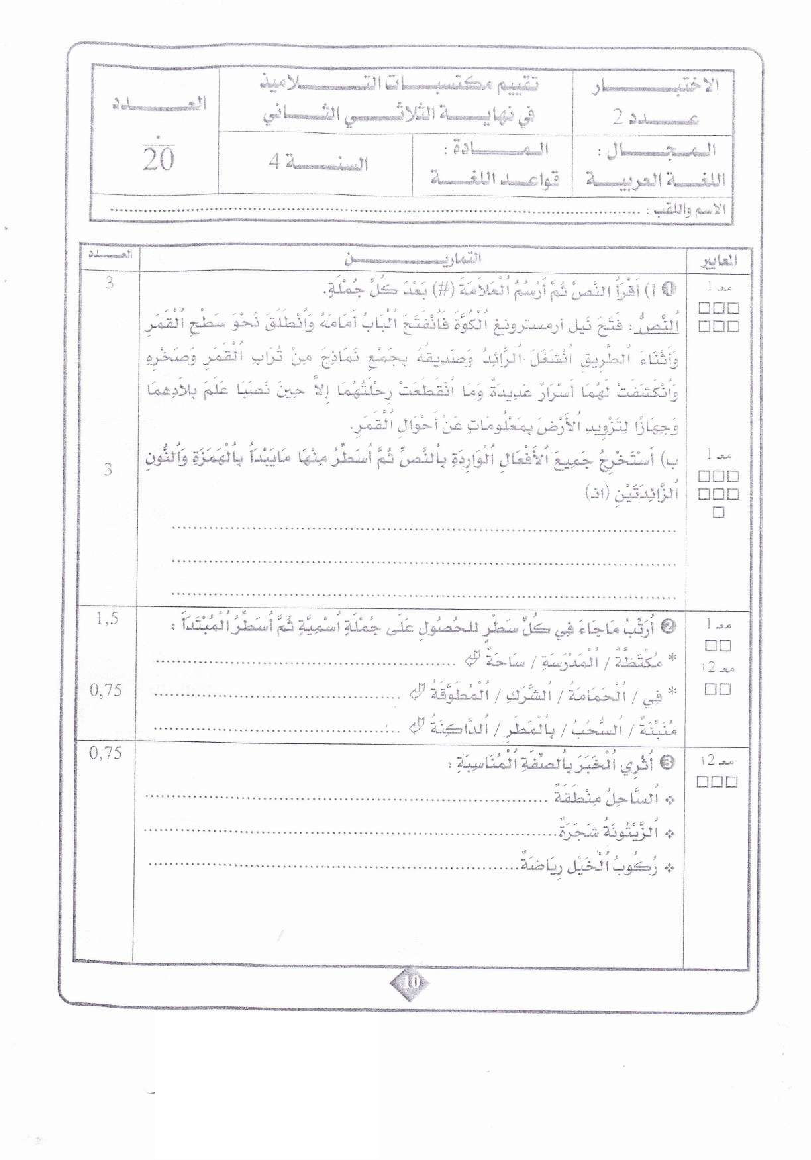 الاختبار عدد 2
تقييم مكتسبات التلاميذ في نهاية الثلاثي الثاني
العدد
20
المجال : اللغة العربية
المادة : قواعد اللغة
السنة 4
الاسم واللقب : ........................................
المعايير
التمارين
العدد
معـ 1
❶ أ) أَقْرَأُ النَّصَّ ثُمَّ أَرْسُمُ الْعَلاَمَةَ (#) بَعْدَ كُلِّ جُمْلَةٍ.
3
النَّصُّ : فَتَحَ نيل أرمسترونغ الْكُوَّةَ فَانْفَتَحَ الْبَابُ أَمَامَهُ وَانْطَلَقَ نَحْوَ سَطْحِ الْقَمَرِ
وَأَثْنَاءَ الطَّرِيقِ انْشَغَلَ الرَّائِدُ وَصَدِيقُهُ بِجَمْعِ نَمَاذِجَ مِنْ تُرَابِ الْقَمَرِ وَصَخْرِهِ
وَانْكَشَفَتْ لَهُمَا أَسْرَارٌ عَدِيدَةٌ وَمَا انْقَطَعَتْ رِحْلَتُهُمَا إِلاَّ حِينَ نَصَبَا عَلَمَ بِلاَدِهِمَا
وَجِهَازًا لِتَزْوِيدِ الأَرْضِ بِمَعْلُومَاتٍ عَنْ أَحْوَالِ الْقَمَرِ.
معـ 1
ب) أَسْتَخْرِجُ جَمِيعَ الأَفْعَالِ الْوَارِدَةِ بِالنَّصِّ ثُمَّ أُسَطِّرُ مِنْهَا مَايَبْدَأُ بِالْهَمْزَةِ وَالنُّونِ
3
الزَّائِدَتَيْنِ (انـ)
........................................
........................................
........................................
معـ 1
❷ أُرَتِّبُ مَاجَاءَ فِي كُلِّ سَطْرٍ للحُصُولِ عَلَى جُمْلَةٍ اسْمِيَّةٍ ثُمَّ أُسَطِّرُ الْمُبْتَدَأَ :
1,5
معـ 12
* مُكْتَظَّةٌ / الْمَدْرَسَةِ / سَاحَةُ ........................................
* فِي / الْحَمَامَةُ / الشَّرَكِ / الْمُطَوَّقَةُ ........................................
0,75
مُنْبِئَةٌ / السُّحُبُ / بِالْمَطَرِ / الدَّاكِنَةُ ........................................
معـ 12
❸ أُثْرِي الْخَبَرَ بِالصِّفَةِ الْمُنَاسِبَةِ :
0,75
❖ السَّاحِلُ مِنْطَقَةٌ ........................................
❖ الزَّيْتُونَةُ شَجَرَةٌ........................................
❖ رُكُوبُ الْخَيْلِ رِيَاضَةٌ........................................
10